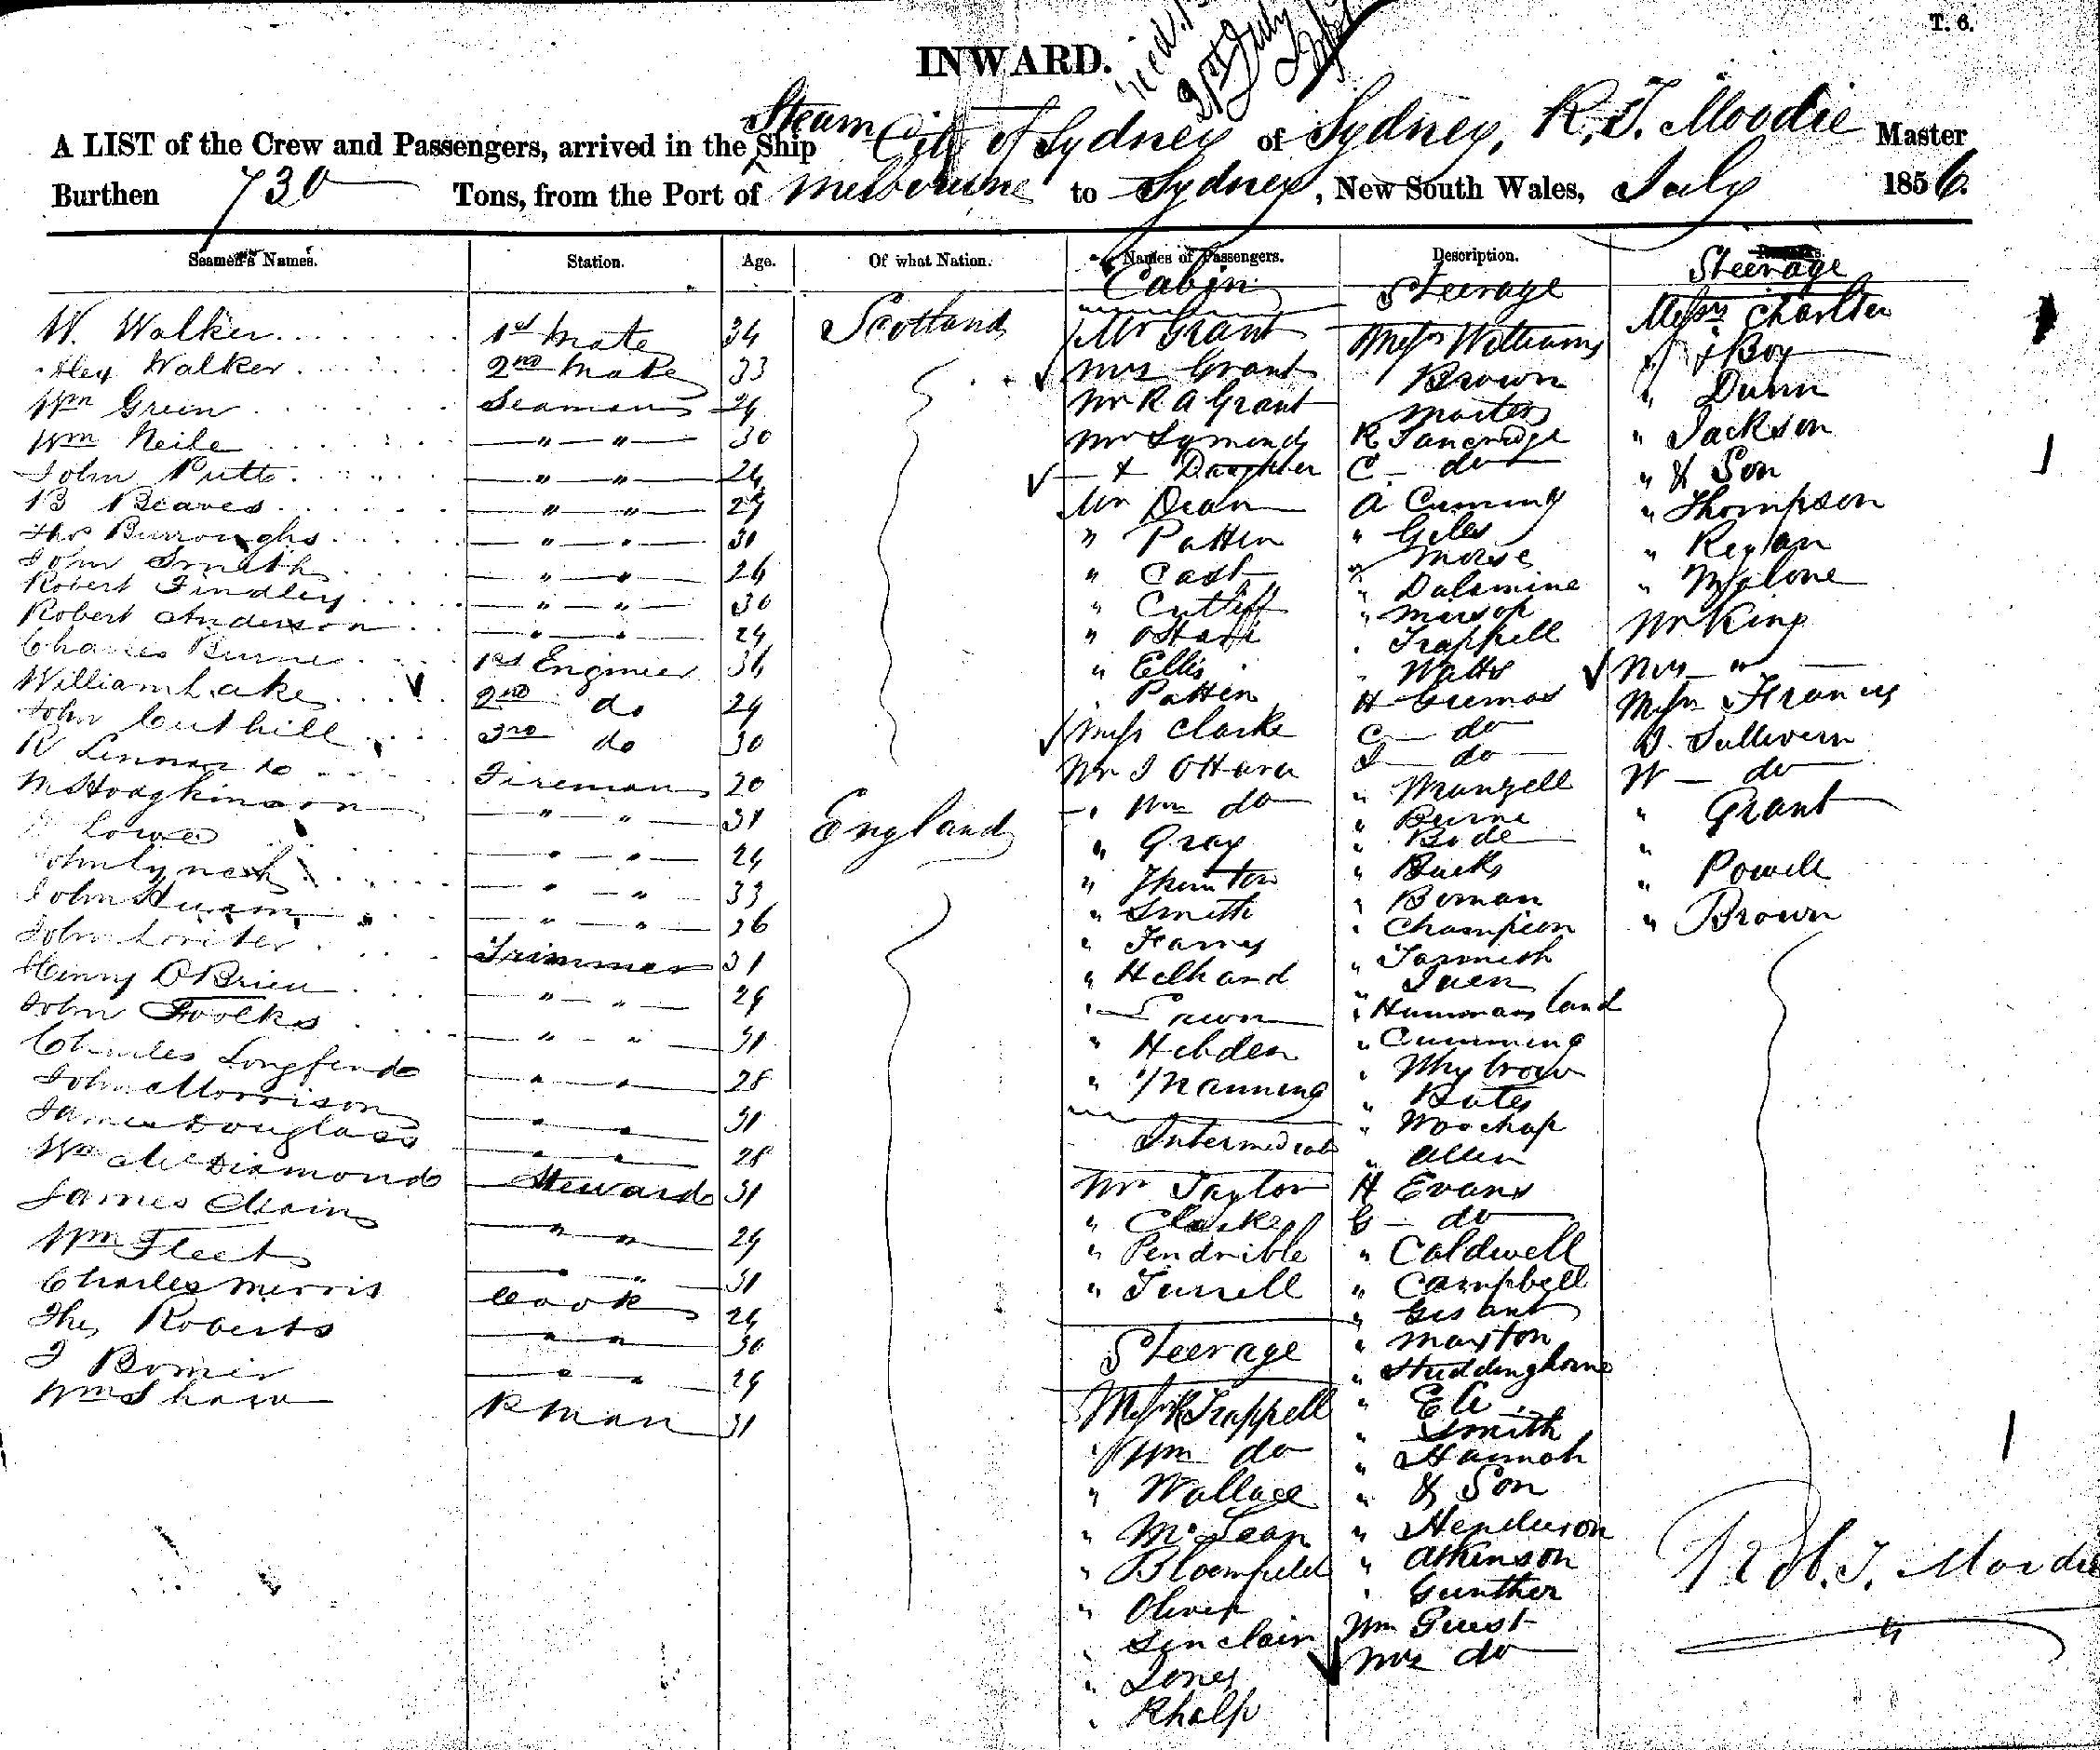 T. 6.
INWARD.
21st July
A LIST of the Crew and Passengers, arrived in the Steam Ship City of Sydney of Sydney, R. T. Moodie Master
Burthen 730 Tons, from the Port of Melbourne to Sydney, New South Wales, July 1856.
Seamen's Names. Station. Age. Of what Nation. Names of Passengers. Description. Steerage
Cabin Steerage
W. Walker 1st Mate 34 Scotland
Alex Walker 2nd Mate 33
Wm Green Seaman 24
Wm Neile " " 30
John Putt " "
B Beaves " " 29
Thos Burroughs " " 31
John Smith " " 26
Robert Findley " " 30
Robert Anderson " " 29
Charles Burne 1st Engineer 36
William Lake 2nd do 29
John Cuthill 3rd do 30
R Fireman 20
M Hodgkinson " " 31 England
Lowe " " 24
John Lynch " " 33
John " " 26
John Trimmer 31
Henry O'Brien " " 29
John Foolks " " 31
Charles Longfend " " 28
John Morrison " " 31
James Douglass " " 28
Wm McDiamond Steward 31
James " " 29
Wm Fleet " " 31
Charles Merris Cook 24
Thos Roberts " " 30
J " " 29
Wm Shaw P man 31
Mr Grant
Mrs Grant
Mr R A Grant
Mr Symonds
— & Daughter
Mr Dean
" Patten
" Cast
" Cutleff
" OHara
" Ellis
" Patten
Miss Clarke
Mr J OHara
" Wm do
" Gray
" Thornton
" Smith
"
" Helland
"
" Hebden
" Manning
Intermediate
Mr Taylor
" Clarke
" Pendrible
" Turrell
Steerage
Messrs R Trappell
" Wm do
" Wallace
" McLean
" Bloomfield
" Oliver
" Sinclair
" Jones
" Khalp
Messrs Williams
Brown
Masters
R Taneridge
C — do
A Cuming
" Giles
" Morse
" Dalsmine
" Missop
" Trappell
" Watts
H Gremas
C — do
J — do
" Manzell
" Burne
" Bode
" Bucks
" Boman
" Champion
" Tarmish
"
" Hummansland
" Cumming
" Whybrow
" Bates
" Woochap
" Allen
H Evans
G — do
" Caldwell
" Campbell
"
" Maxton
" Studdinghorne
"
" Smith
" Hannah
" & Son
" Henderson
" Atkinson
" Gunther
Wm Guest
Mrs do
Messrs Charlton
" & Boy
" Dunn
" Jackson
" & Son
" Thompson
" Reylan
" Malone
Mr King
Mrs "
Messrs Francis
J. Sullivern
W — do
" Grant
"
" Powell
" Brown
Robt. T. Moodie